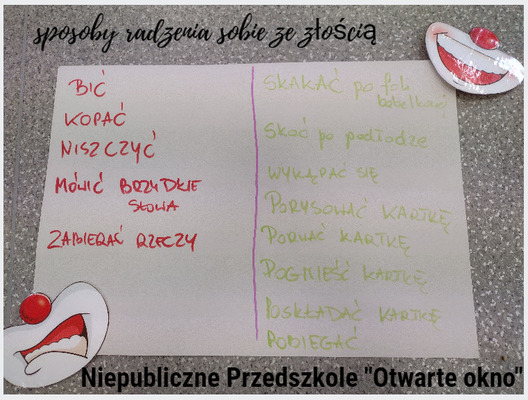 sposoby radzenia sobie ze złością
BIĆ
KOPAĆ
NISZCZYĆ
MÓWIĆ BRZYDKIE
SŁOWA
ZABIERAĆ RZECZY
SKAKAĆ po foli
bąbelkowej
Skoć po podłodze
WYKĄPAĆ SIĘ
PORYSOWAĆ KARTKĘ
PORWAĆ KARTKĘ
POGNIEŚĆ KARTKĘ
POSKŁADAĆ KARTKĘ
POBIEGAĆ
Niepubliczne Przedszkole "Otwarte okno"